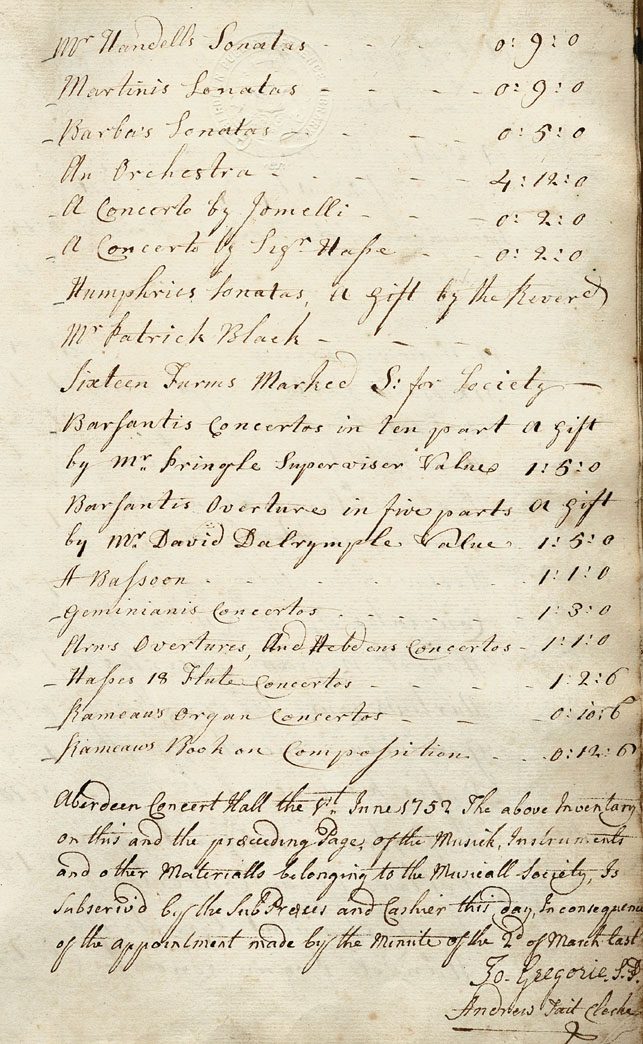 Mr Handells Sonatas - - - 0: 9: 0
Martinis Sonatas - - - 0: 9: 0
Barba's Sonatas - - - 0: 5: 0
An Orchestra - - - 4: 12: 0
A Concerto by Jomelli - - - 0: 2: 0
A Concerto by Sigr. Hasse - - 0: 2: 0
Humphries Sonatas, a gift by the Reverd
Mr Patrick Black - - -
Sixteen Furms Marked S: for Society
Barsantis Concertos in ten part a gift
by Mr. Pringle Superviser Value 1: 5: 0
Barsantis Overture in five parts a gift
by Mr. David Dalrymple Value 1: 5: 0
A Bassoon - - - 1: 1: 0
Geminianis Concertos - - - 1: 3: 0
Arns Overtures, And Hebdens Concertos - 1: 1: 0
Hasses 18 Flute Concertos - - - 1: 2: 6
Rameaus Organ Concertos - - - 0: 10: 6
Rameaus Book on Composition - - 0: 12: 6
Aberdeen Concert Hall the 1st. June 1752 The above Inventary
on this and the preceeding Page, of the Musick, Instruments
and other Materialls belonging to the Musicall Society, Is
Subscriv'd by the Sub Preses and Cashier this day, In consequence
of the appointment made by the Minute of the 2d of March last
Jo. Gregorie. S.P.
Andrew Tait